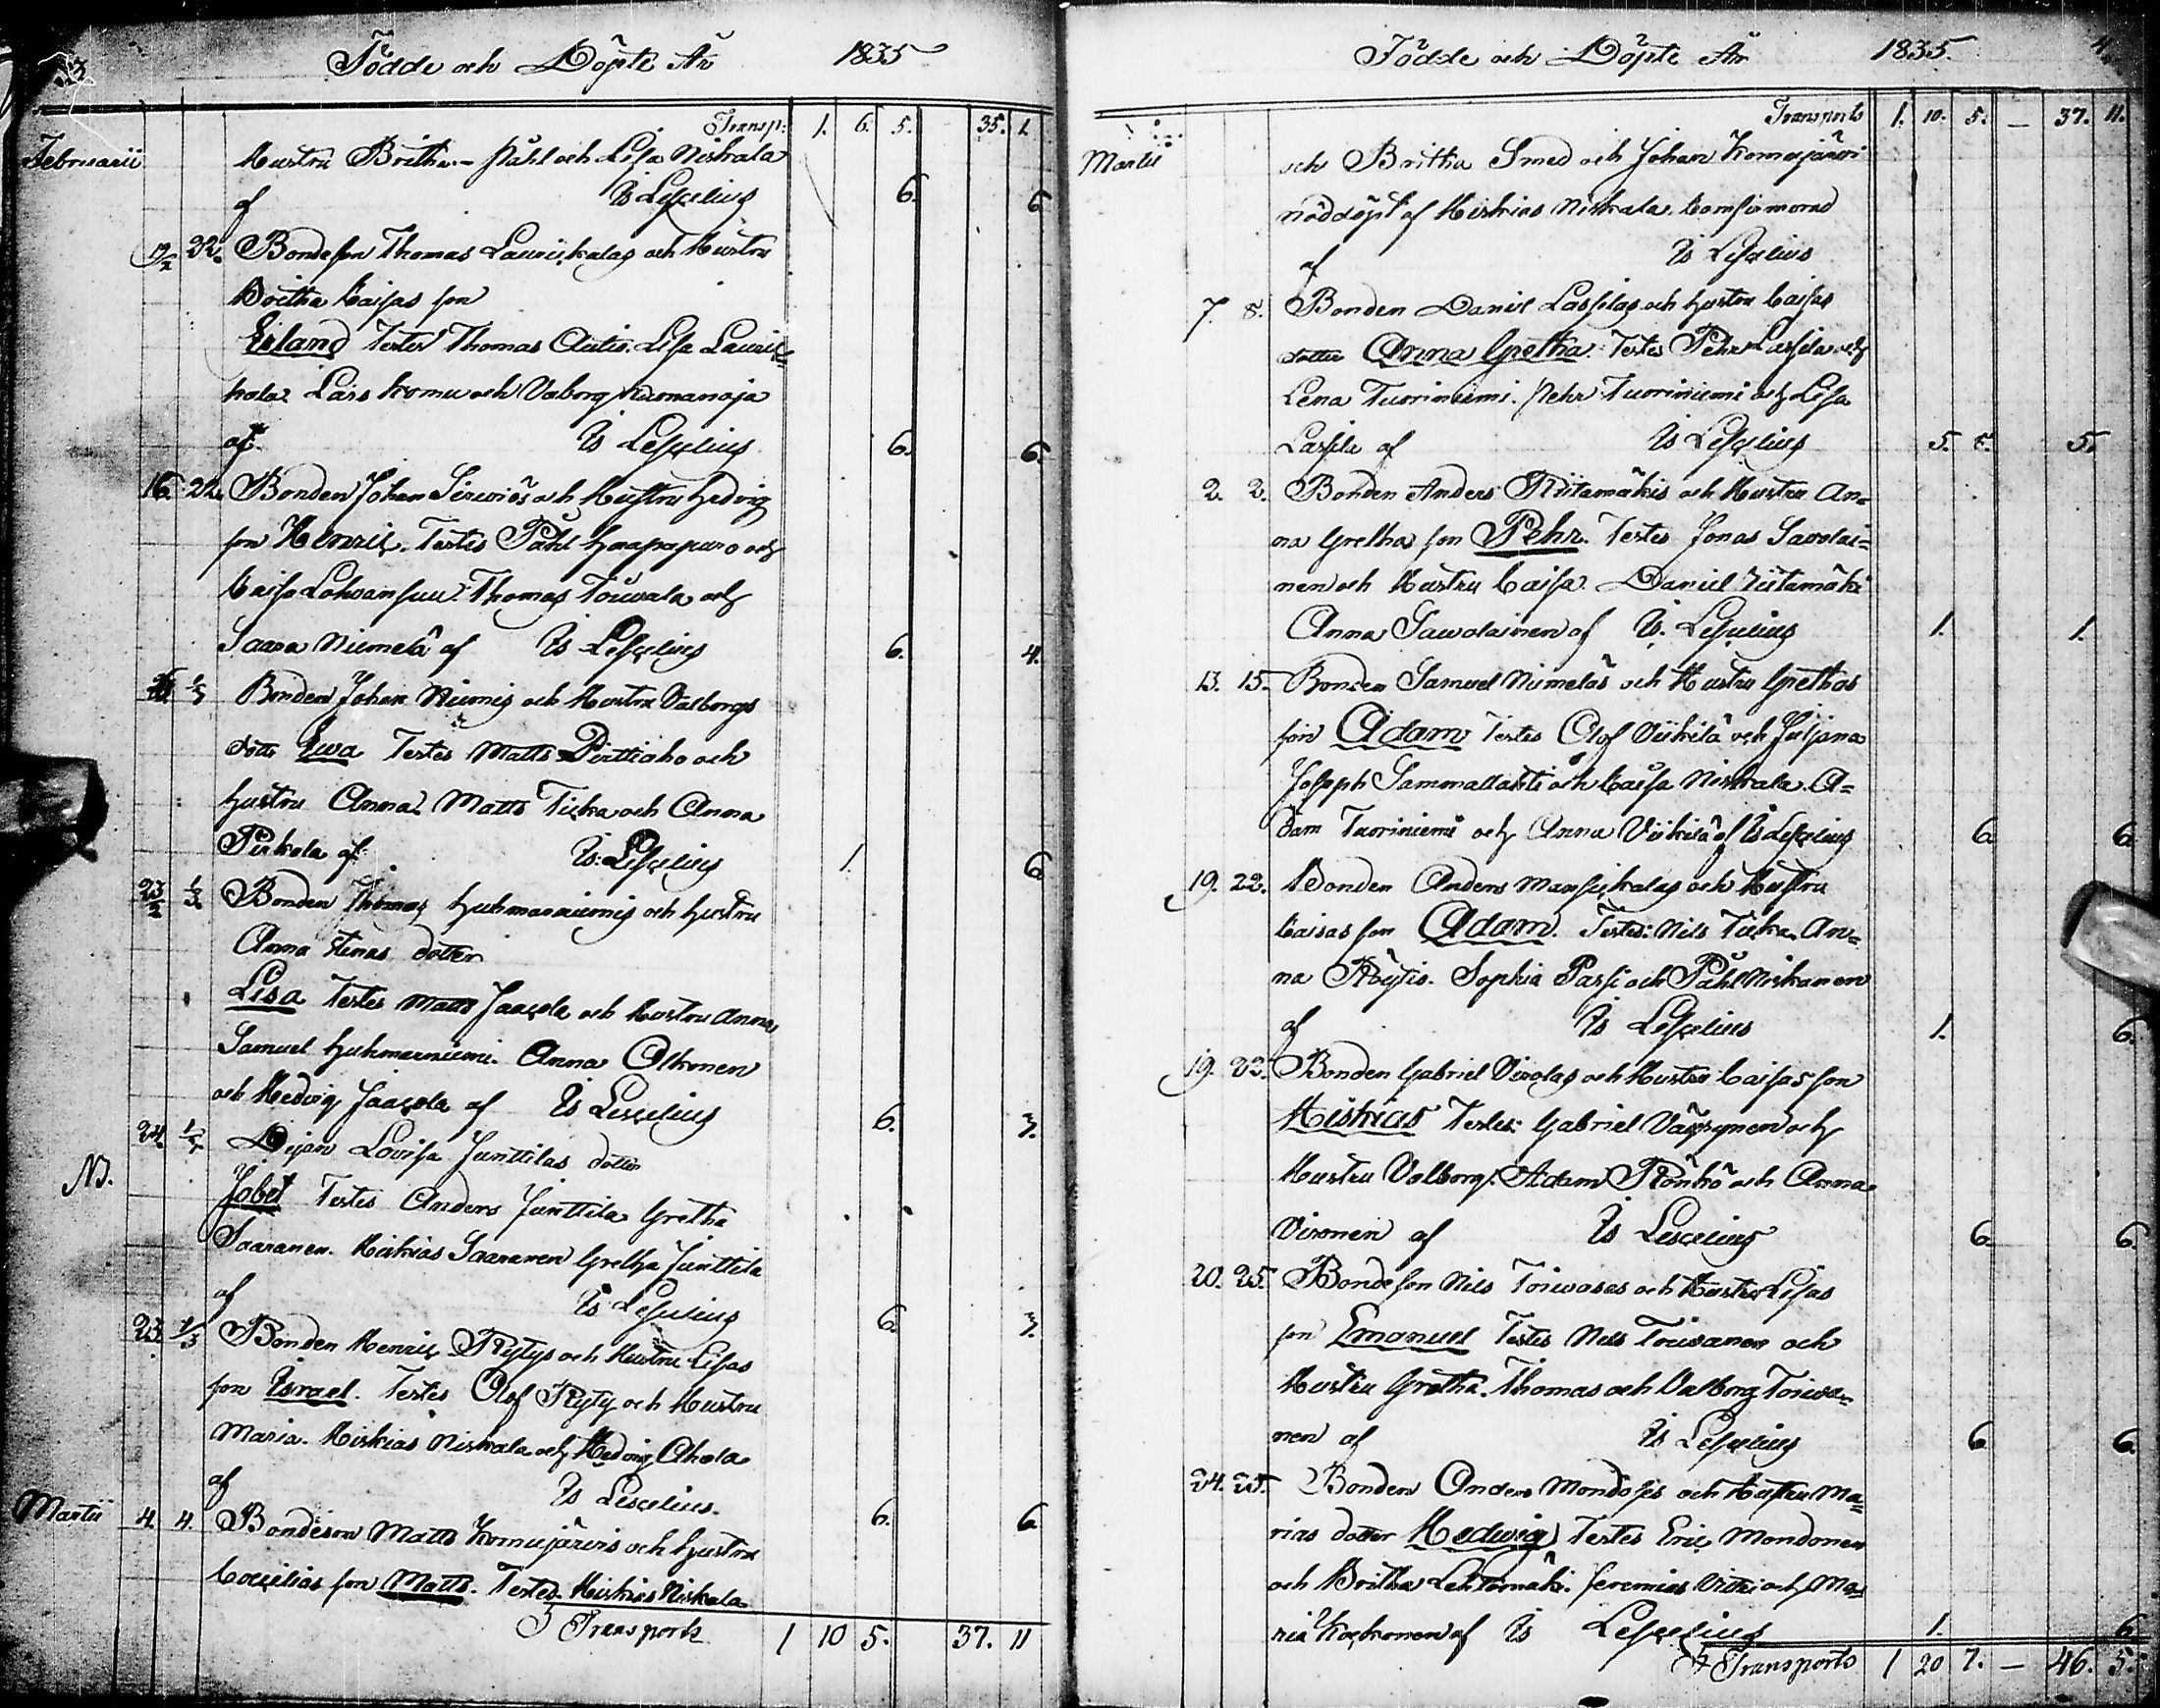 Födde och Döpte År 1835
Transp: 1. 6. 5. 35. 1.
Februarii Hustru Britha - Påhl och Lisa Niskala
af Is Lescelius 6. 6
22. Bondeson Thomas Lauriskalas och Hustru
Britha Caisas son
Erland Testes Thomas Autio. Lisa Lauris=
kala Lars Komu och Valborg
af Is Lescelius 6. 6.
16. 22. Bonden Johan Sirviös och Hustru Hedvig
son Henric. Testes Påhl Haapapuro och
Caisa Lohvansuu. Thomas Toivala och
Saara Niemelä af Is Lescelius 6. 4.
1/3 Bonden Johan Niemis och Hustru Valborgs
dotter Ewa Testes Matts Pirttiaho och
hustru Anna. Matts Ticka och Anna
Pirkola af Is: Lescelius 1. 6
23/2 1/3 Bonden Thomas Huhmarniemis och hustru
Anna Stinas dotter
Lisa Testes Matts Jaacola och Hustru Anna
Samuel Huhmarniemi. Anna Olkonen
och Hedvig Jaacola af Is Lescelius 6. 3.
24. 1/3 Pigan Lovisa Junttilas dotter
N. Testes Anders Junttila Gretha
Saaranen. Hiskias Saaranen Gretha Junttila
af Is Lescelius 6. 3.
23. 1/3 Bonden Henric Rytys och Hustru Lisas
son Israel. Testes Olof Ryty och Hustru
Maria. Hiskias Niskala och Hedvig Ahola
af Is Lescelius. 6. 6
Martii 4. 4. Bondeson Matts Komujärvis och hustru
Cecilias son Matts. Testes Hiskias Niskala
Transports 1 10 5. 37. 11
Födde och Döpte År 1835. 4.
Transports 1. 10. 5. — 37. 11.
Martii och Britha Smed och Johan Komujärvi
nöddöpt af Hiskias Niskala. Confirmerad
af Is Lescelius
7. 8. Bonden Daniel Lassilas och hustru Caisas
dotter Anna Gretha. Testes Pehr Lassila och
Lena Tuoriniemi. Pehr Tuoriniemi och Lisa
Lassila af Is Lescelius 5. 5.
2. 2. Bonden Anders Riitamäkis och Hustru An=
na Grethas son Pehr. Testes Jonas Savolai=
nen och Hustru Caisa. Daniel Riitamäki
Anna Sawolainen af Is. Lescelius 1. 1.
13. 15. Bonden Samuel Niemeläs och Hustru Grethas
son Adam Testes Olof Viikilä och Juliana
Joseph Sammallahti och Caisa Niskala. A=
dam Tuoriniemi och Anna Viikilä af Is Lescelius 6 6
19. 22. Bonden Anders Mansikkalas och Hustru
Caisas son Adam. Testes: Nils Ticka. An=
na Röytiö. Sophia Passi och Påhl Niskanen
af Is Lescelius 1. 6.
19. 22. Bonden Gabriel Virolas och Hustru Caisas son
Hiskias Testes: Gabriel Väyrynen och
Hustru Valborg. Adam Rönkö och Anna
Vironen af Is Lescelius 6 6.
20. 25. Bondeson Nils Toivoses och Hustru Lisas
son Emanuel Testes Nils Toivanen och
Hustru Gretha. Thomas och Valborg Toiva=
nen af Is Lescelius 6 6
24. 25. Bonden Anders Mondoses och Hustru Ma=
rias dotter Hedwig Testes Eric Mondonen
och Britha Lehtomäki. Jeremias Witki och Ma=
ria Kockonen af Is Lescelius 1. 6
Transports 1 20 7. — 46. 5.